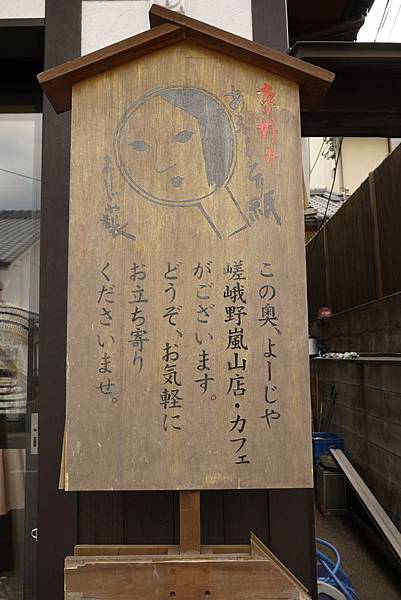 あぶらとり紙
よーじや製
この奥、よーじや
嵯峨野嵐山店・カフェ
がございます。
どうぞ、お気軽に
お立ち寄り
くださいませ。